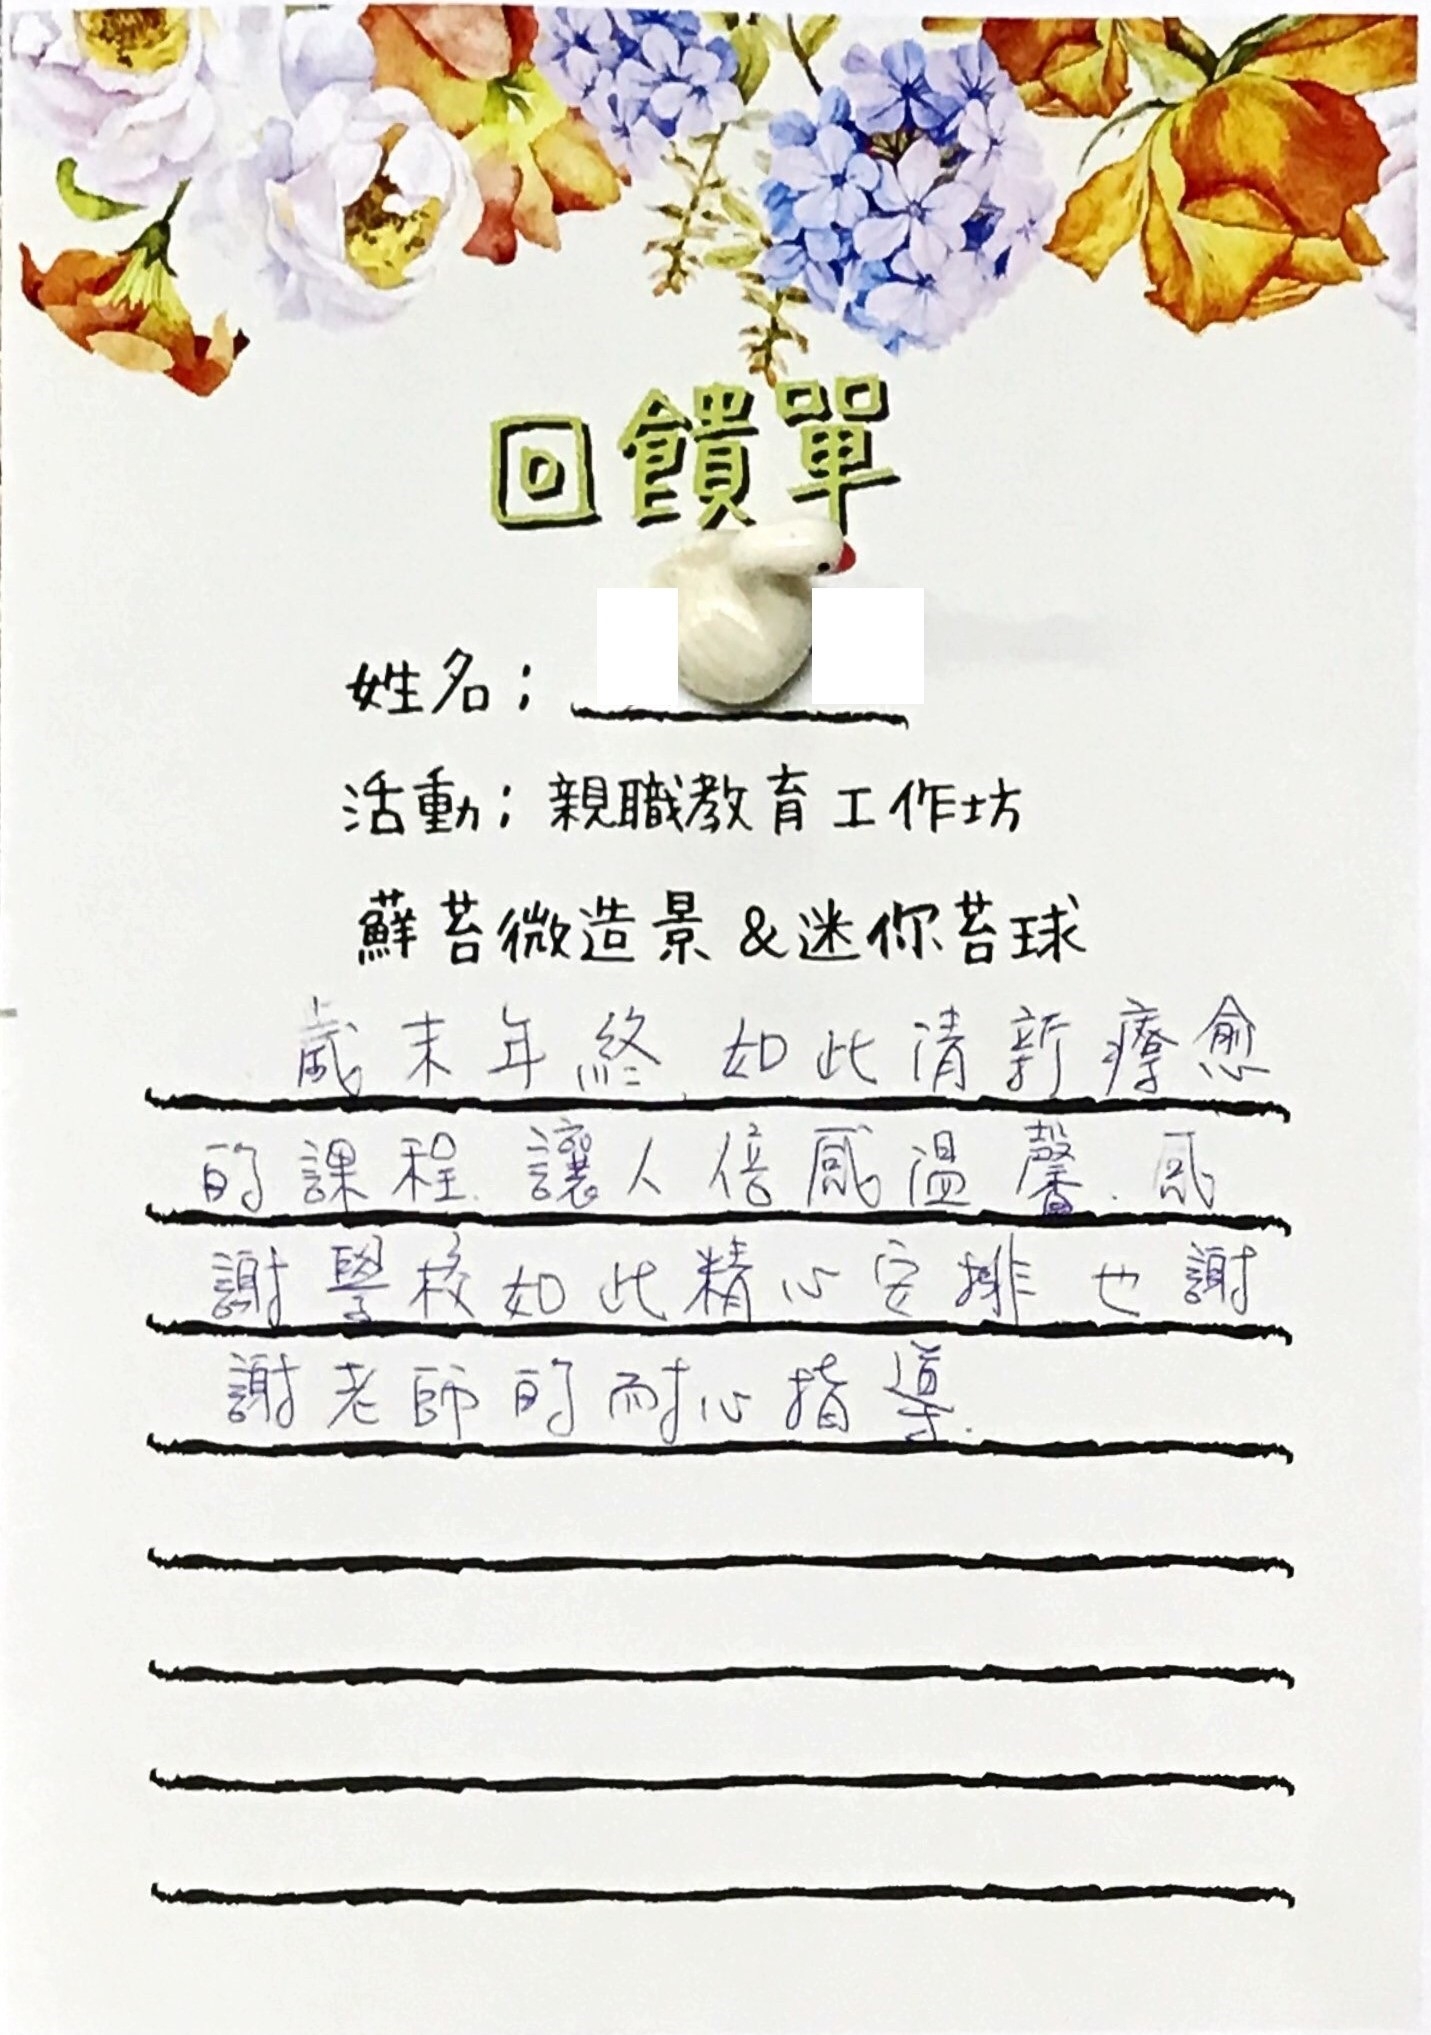 回饋單
姓名：
活動：親職教育工作坊
蘚苔微造景&迷你苔球
歲末年終,如此清新療愈
的課程.讓人倍感溫馨.感
謝學校如此精心安排也謝
謝老師的耐心指導.